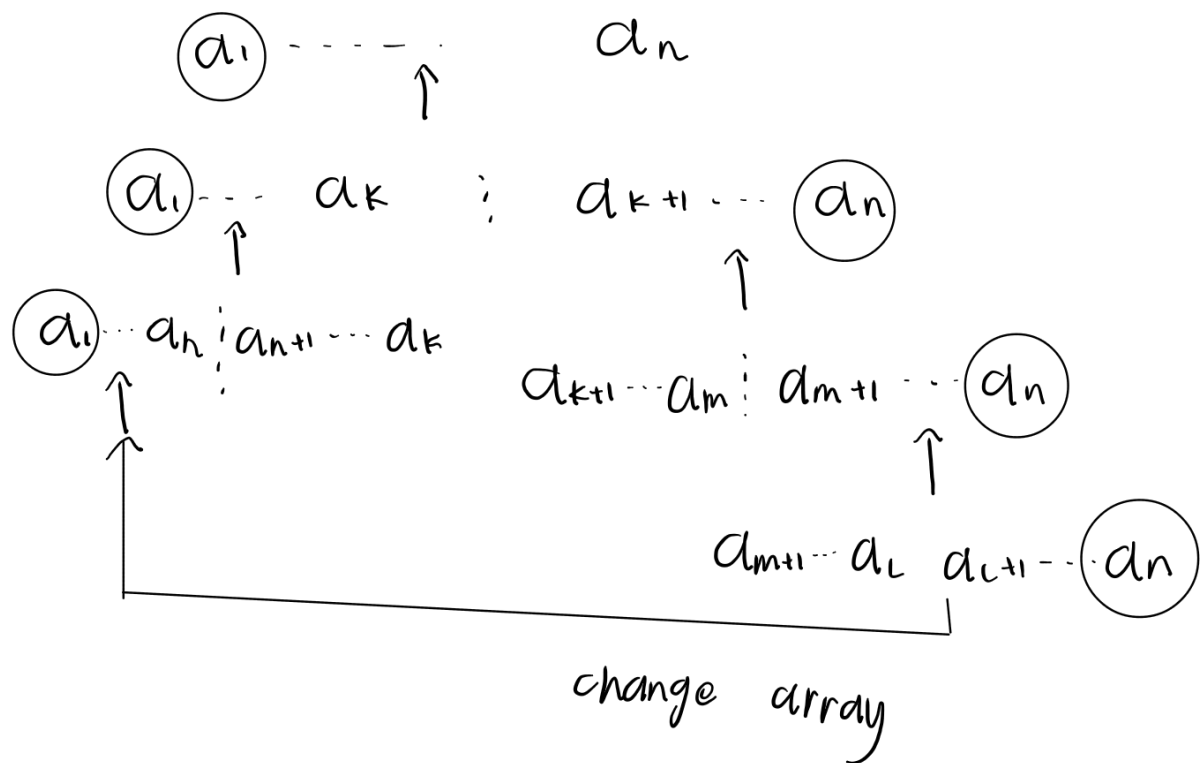 a₁ - - - - - aₙ
a₁ - - - aₖ ⋮ aₖ₊₁ - - - aₙ
a₁ ··· aₕ ⋮ aₕ₊₁ ··· aₖ
aₖ₊₁ ··· aₘ ⋮ aₘ₊₁ ··· aₙ
aₘ₊₁ ··· a_L a_L₊₁ - - - aₙ
change array